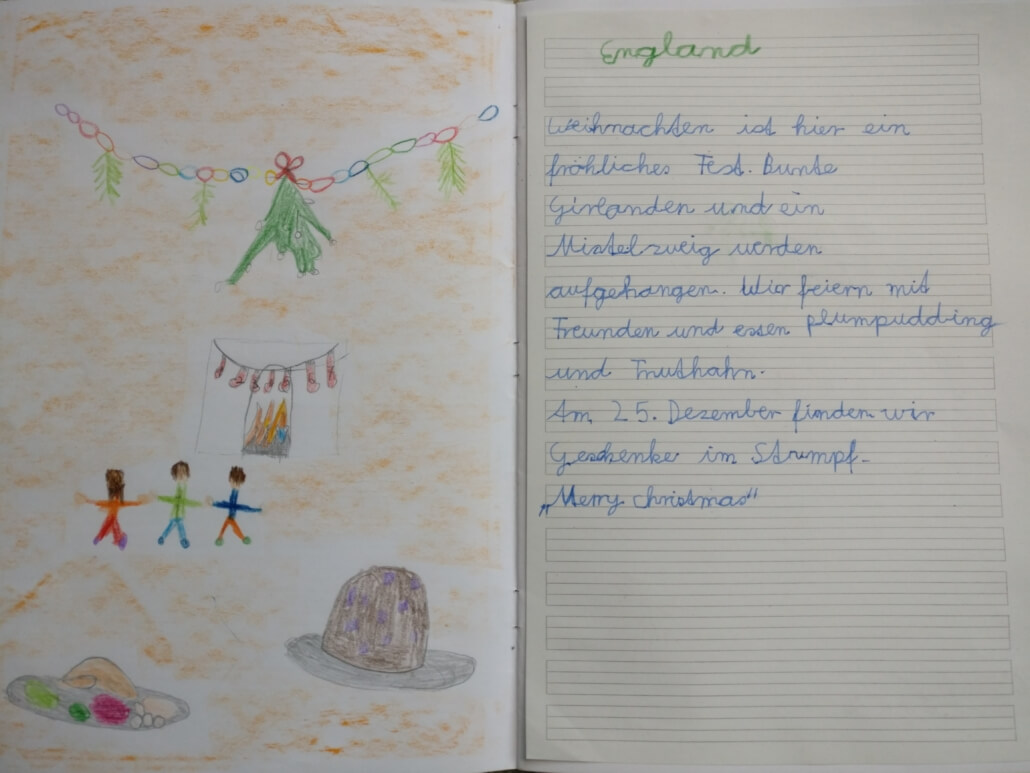 England
Weihnachten ist hier ein
fröhliches Fest. Bunte
Girlanden und ein
Mistelzweig werden
aufgehangen. Wir feiern mit
Freunden und essen plumpudding
und Truthahn.
Am 25. Dezember finden wir
Geschenke im Strumpf.
„Merry christmas"